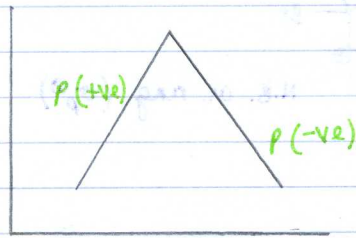 P (+ve)
P (-ve)